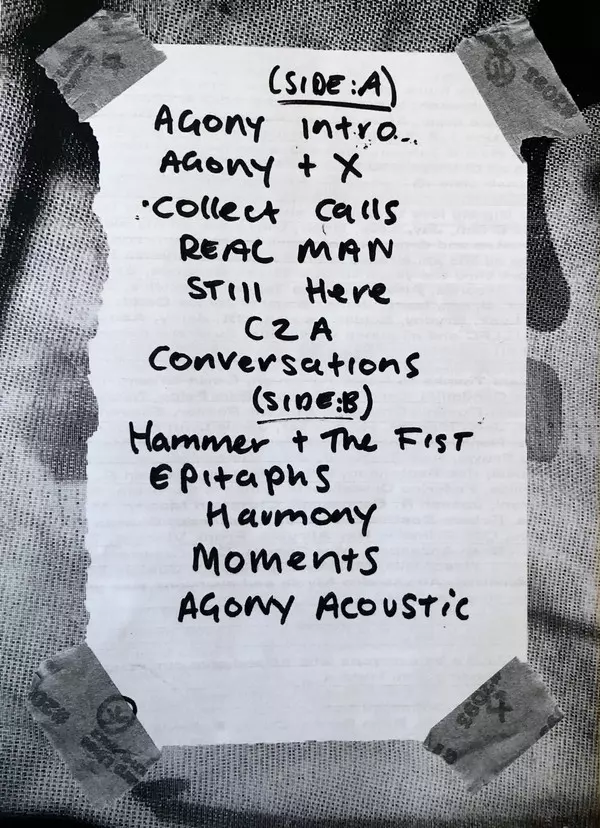 (SIDE:A)
AGONY intro...
AGONY + X
·Collect calls
REAL MAN
STILL Here
C2A
Conversations
(SIDE:B)
Hammer + The FIST
EPitaphs
Harmony
Moments
AGONY ACOUSTIC